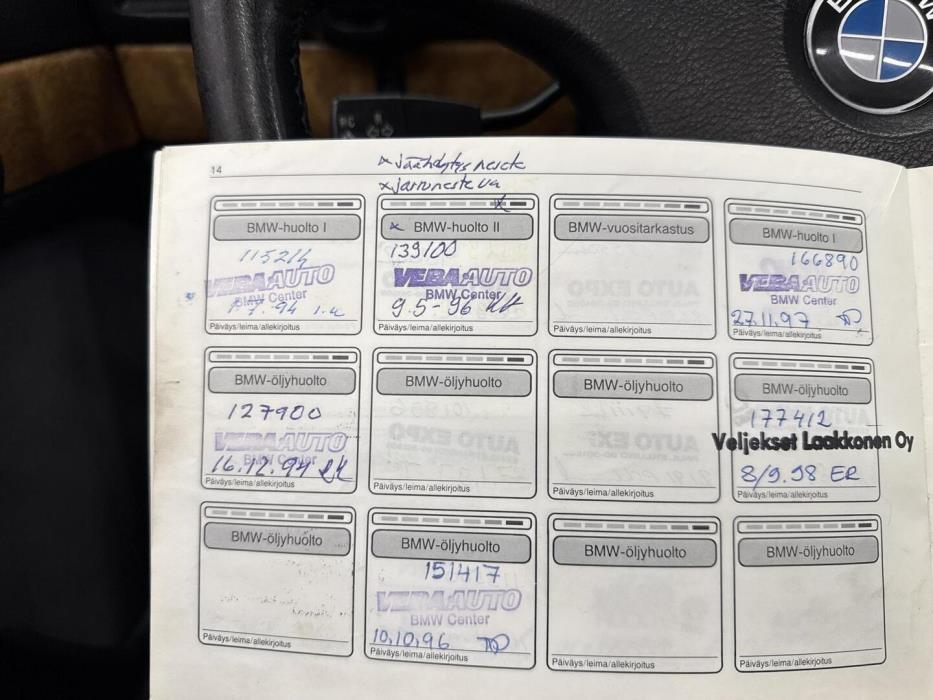 BMW
14
x Jäähdytys neste
x jarruneste va
BMW-huolto I
115214
VEHO AUTO
BMW Center
1.7.94
Päiväys/leima/allekirjoitus
x BMW-huolto II
139100
VEHO AUTO
BMW Center
9.5-96
Päiväys/leima/allekirjoitus
BMW-vuositarkastus
AUTO EXPO
Päiväys/leima/allekirjoitus
BMW-huolto I
166890
VEHO AUTO
BMW Center
27.11.97
Päiväys/leima/allekirjoitus
BMW-öljyhuolto
127900
VEHO AUTO
BMW Center
16.12.94
Päiväys/leima/allekirjoitus
BMW-öljyhuolto
AUTO EXPO
Päiväys/leima/allekirjoitus
BMW-öljyhuolto
AUTO EXPO
Päiväys/leima/allekirjoitus
BMW-öljyhuolto
177412
Veljekset Laakkonen Oy
8/9.98 ER
Päiväys/leima/allekirjoitus
BMW-öljyhuolto
Päiväys/leima/allekirjoitus
BMW-öljyhuolto
151417
VEHO AUTO
BMW Center
10.10.96
Päiväys/leima/allekirjoitus
BMW-öljyhuolto
Päiväys/leima/allekirjoitus
BMW-öljyhuolto
Päiväys/leima/allekirjoitus